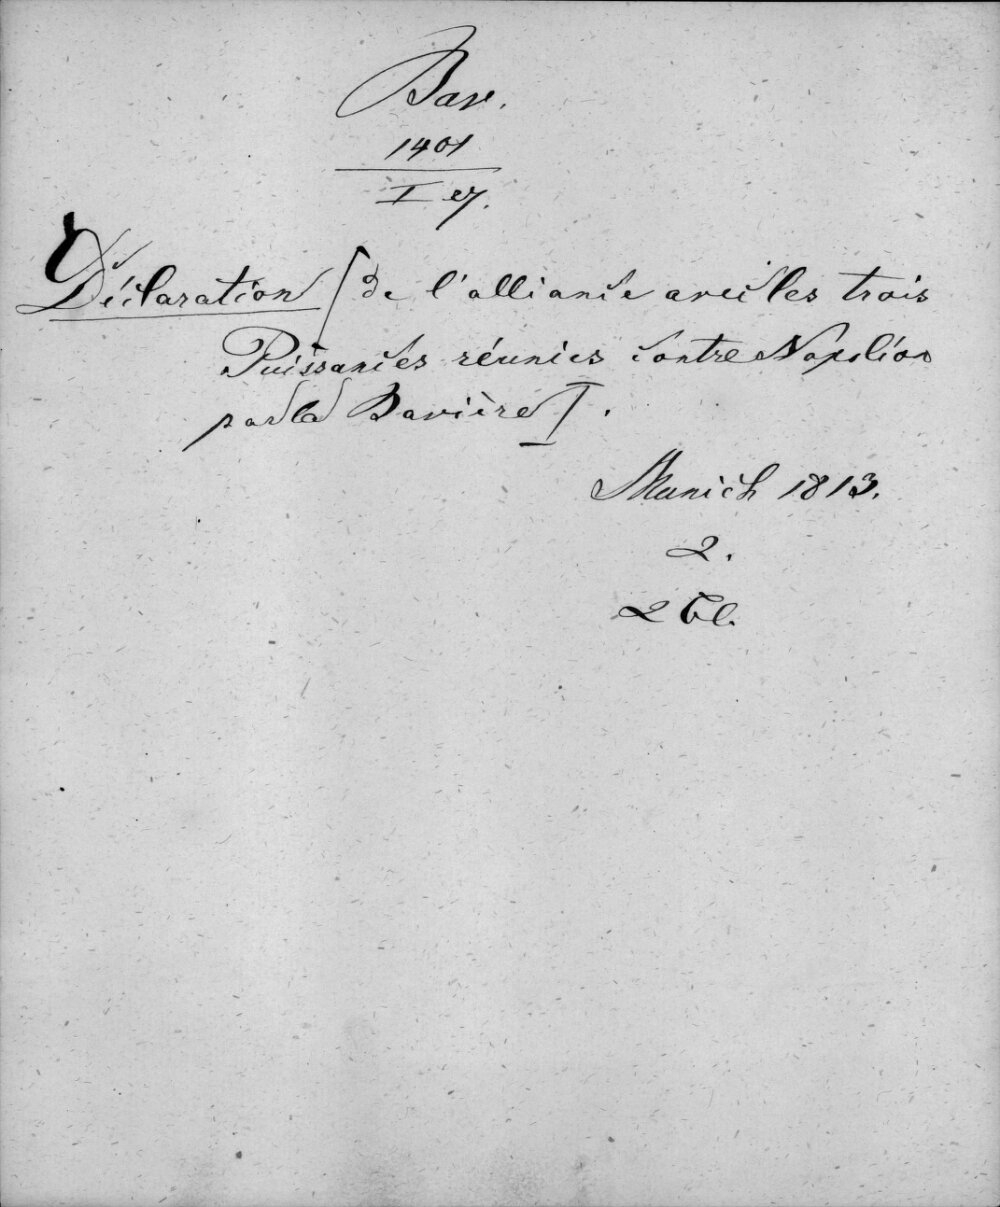 Bav.
1401
I ez.
Déclaration [de l'alliance avec les trois
Puissances réunies contre Napoléon
par la Bavière].
Munich 1813.
2.
2 Bl.